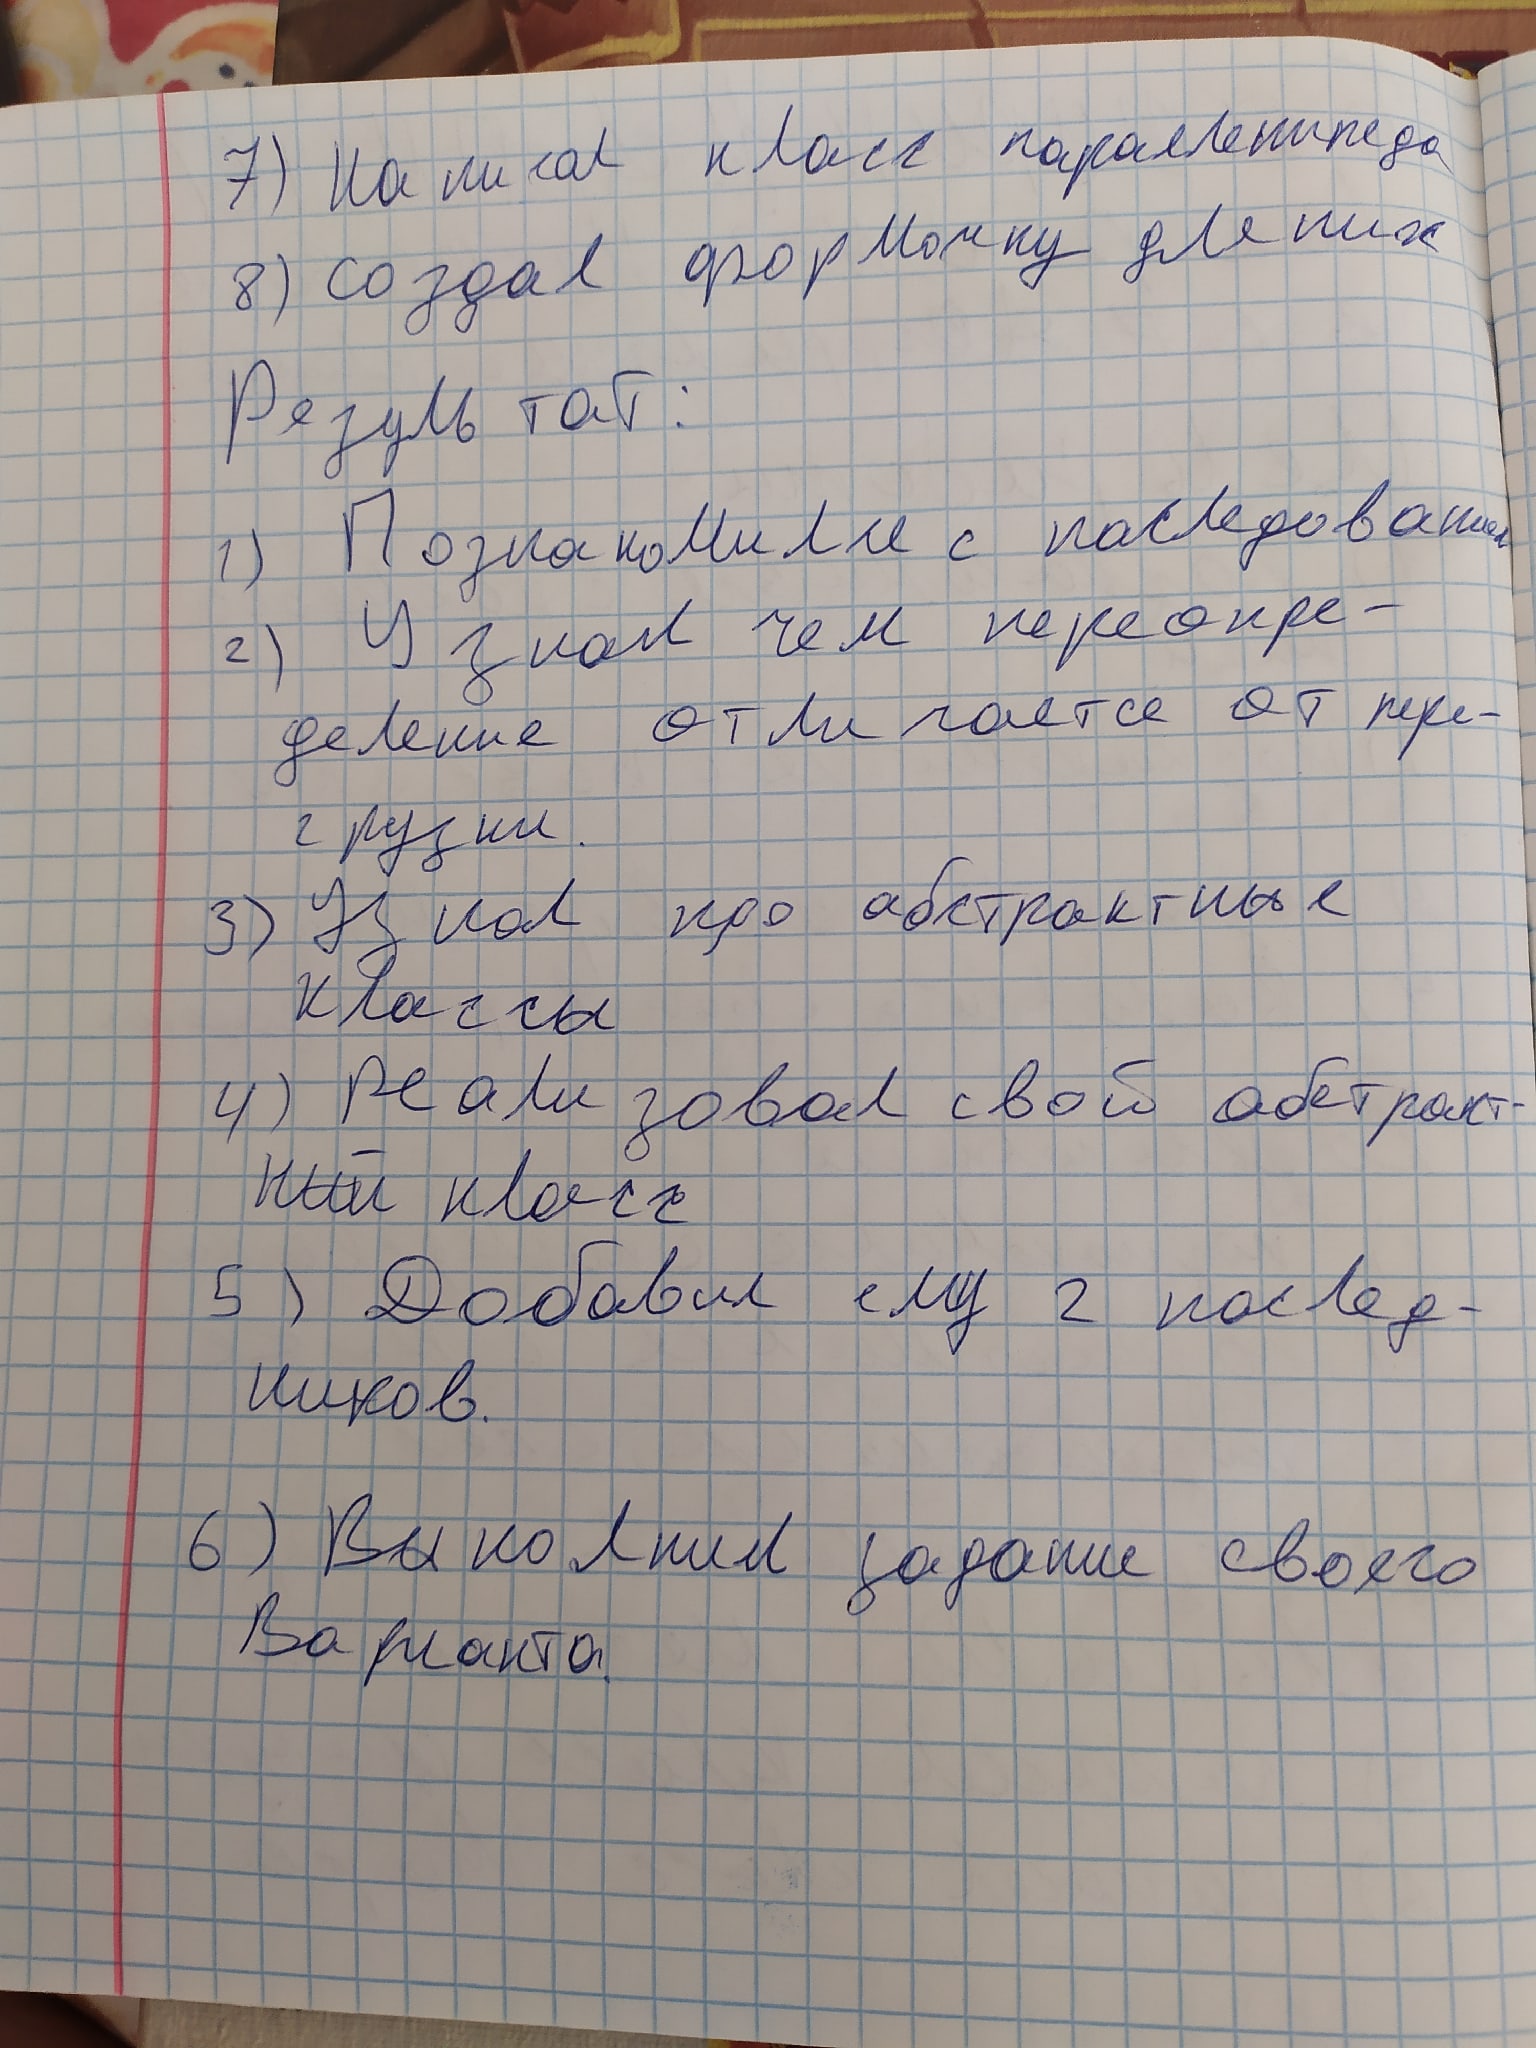 7) Написал класс параллепипеда
8) создал формочку для них
Результат:
1) Познакомился с наследованием
2) Узнал чем переопре-
деление отличается от пере-
грузки.
3) Узнал про абстрактные
классы
4) Реализовал свой абстракт-
ный класс
5) Добавил ему 2 наслед-
ников.
6) Выполнил задание своего
Варианта.